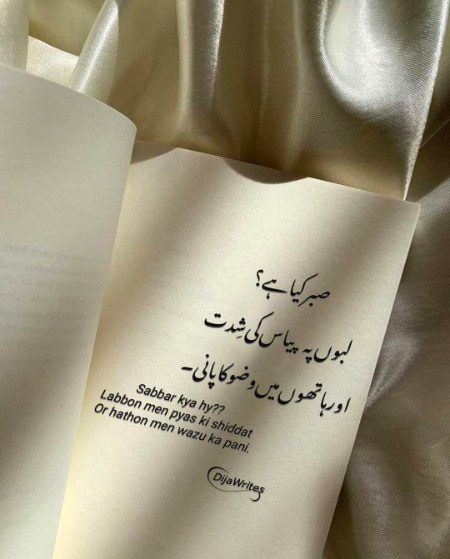 صبر کیا ہے؟
لبوں پہ پیاس کی شِدت
اور ہاتھوں میں وضو کا پانی۔
Sabbar kya hy??
Labbon men pyas ki shiddat
Or hathon men wazu ka pani.
DijaWrites